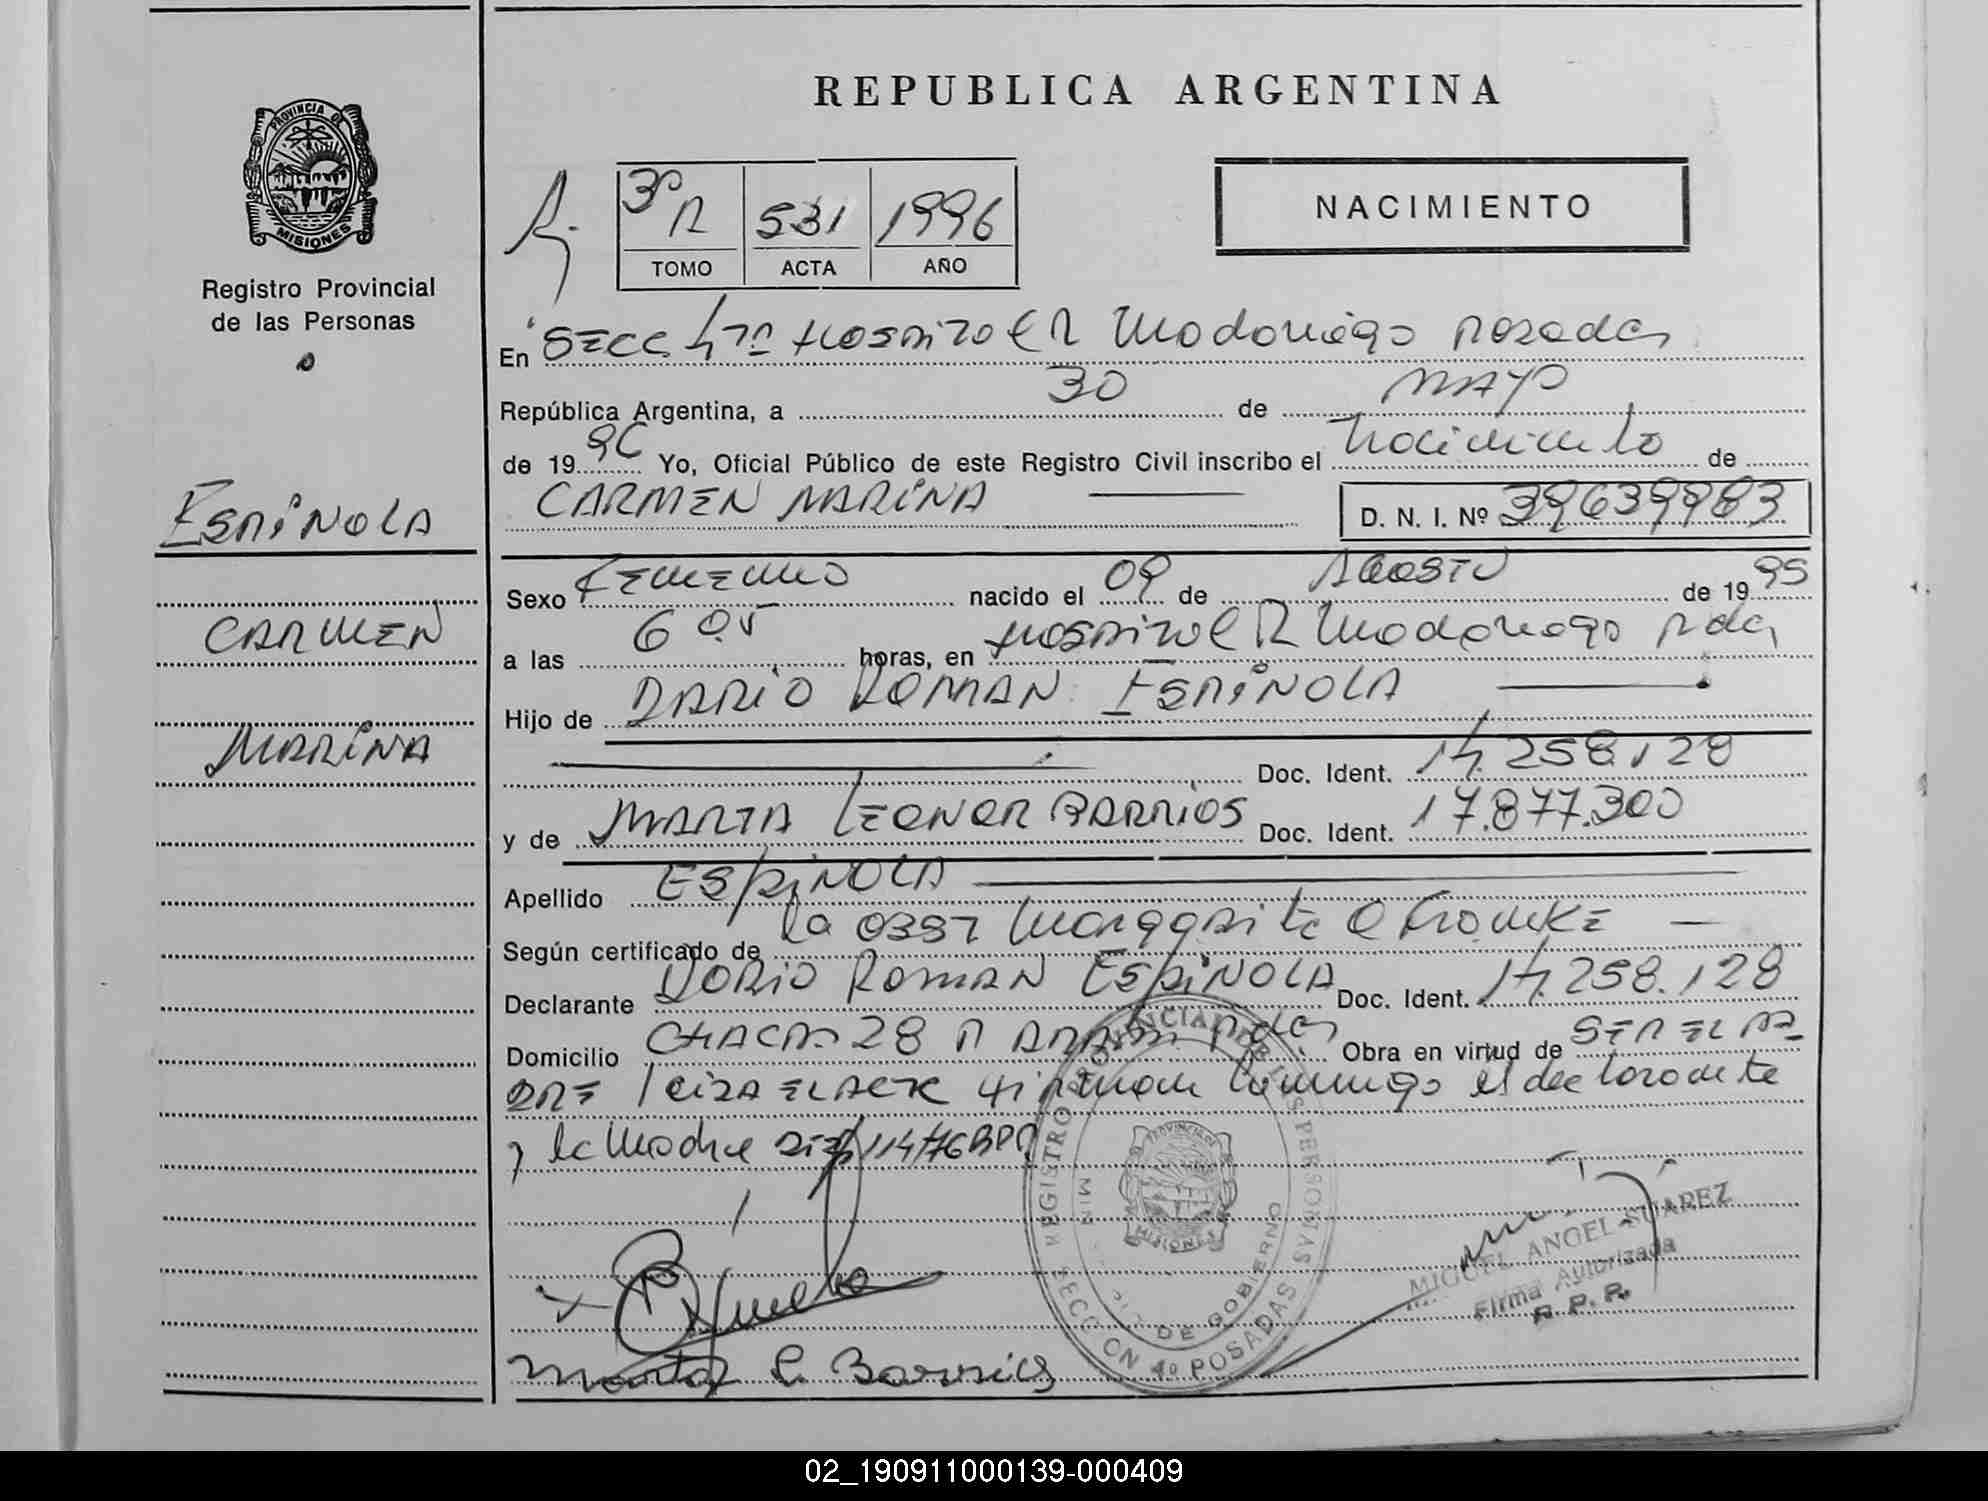 REPUBLICA ARGENTINA
PROVINCIA DE
MISIONES
Registro Provincial
de las Personas
3º R 531 1996
TOMO ACTA AÑO
NACIMIENTO
En Secc 4ta Hospital R Madariaga Posadas
República Argentina, a 30 de MAYO
de 1996 Yo, Oficial Público de este Registro Civil inscribo el nacimiento de
CARMEN MARINA D. N. I. Nº 39639983
ESPINOLA
CARMEN
MARINA
Sexo Femenino nacido el 09 de Agosto de 1995
a las 6 05 horas, en Hospital R Madariaga Pdas
Hijo de DARIO ROMAN ESPINOLA
Doc. Ident. 14.258.128
y de MARTA LEONOR BARRIOS Doc. Ident. 17.877.300
Apellido ESPINOLA
Según certificado de la Obst Margarita
Declarante DARIO ROMAN ESPINOLA Doc. Ident. 14.258.128
Domicilio CHACRA 28 Pdas Obra en virtud de SER EL PA
DRE el declarante
y la Madre 114/76
REGISTRO PROVINCIAL DE LAS PERSONAS
SECCION 4º POSADAS
DE GOBIERNO
PROVINCIA DE
MISIONES
MIGUEL ANGEL SUAREZ
Firma Autorizada
R. P. P.
Marta L. Barrios
02_190911000139-000409